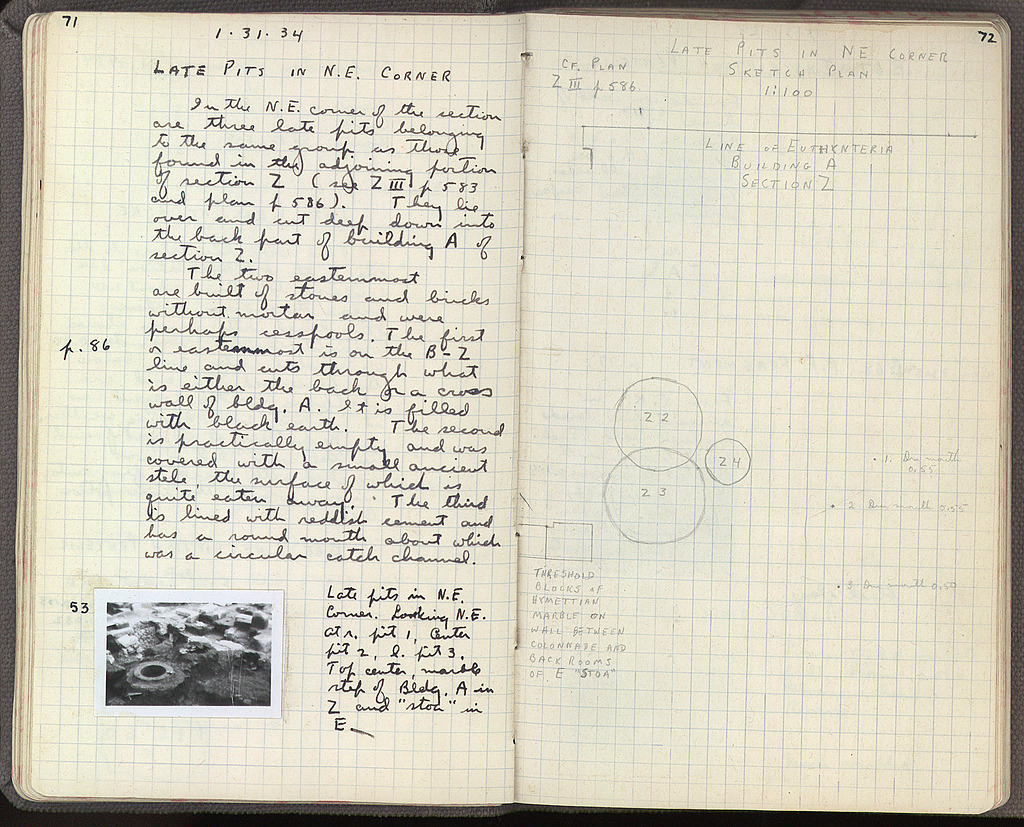 71
1·31·34
LATE PITS IN N.E. CORNER
In the N.E. corner of the section
are three late pits belonging
to the same group as those
found in the adjoining portion
of section Z (see Z III p 583
and plan p 586). They lie
over and cut deep down into
the back part of building A of
section Z.
The two easternmost
are built of stones and bricks
without mortar and were
perhaps cesspools. The first
p. 86
or easternmost is on the B-Z
line and cuts through what
is either the back or a cross
wall of bldg. A. It is filled
with black earth. The second
is practically empty and was
covered with a small ancient
stele, the surface of which is
quite eaten away. The third
is lined with reddish cement and
has a round mouth about which
was a circular catch channel.
53
Late pits in N.E.
Corner. Looking N.E.
At r. pit 1, Center
pit 2, l. pit 3.
Top center, marble
step of Bldg. A in
Z and "stoa" in
E.
72
LATE PITS IN NE CORNER
SKETCH PLAN
1:100
CF. PLAN
Z III p 586
LINE OF EUTHYNTERIA
BUILDING A
SECTION Z
Z 2
Z 4
Z 3
1. Dm mouth
0.55
2 Dm mouth 0.55
3 Dm mouth 0.50
THRESHOLD
BLOCKS OF
HYMETTIAN
MARBLE ON
WALL BETWEEN
COLONNADE AND
BACK ROOMS
OF E "STOA"